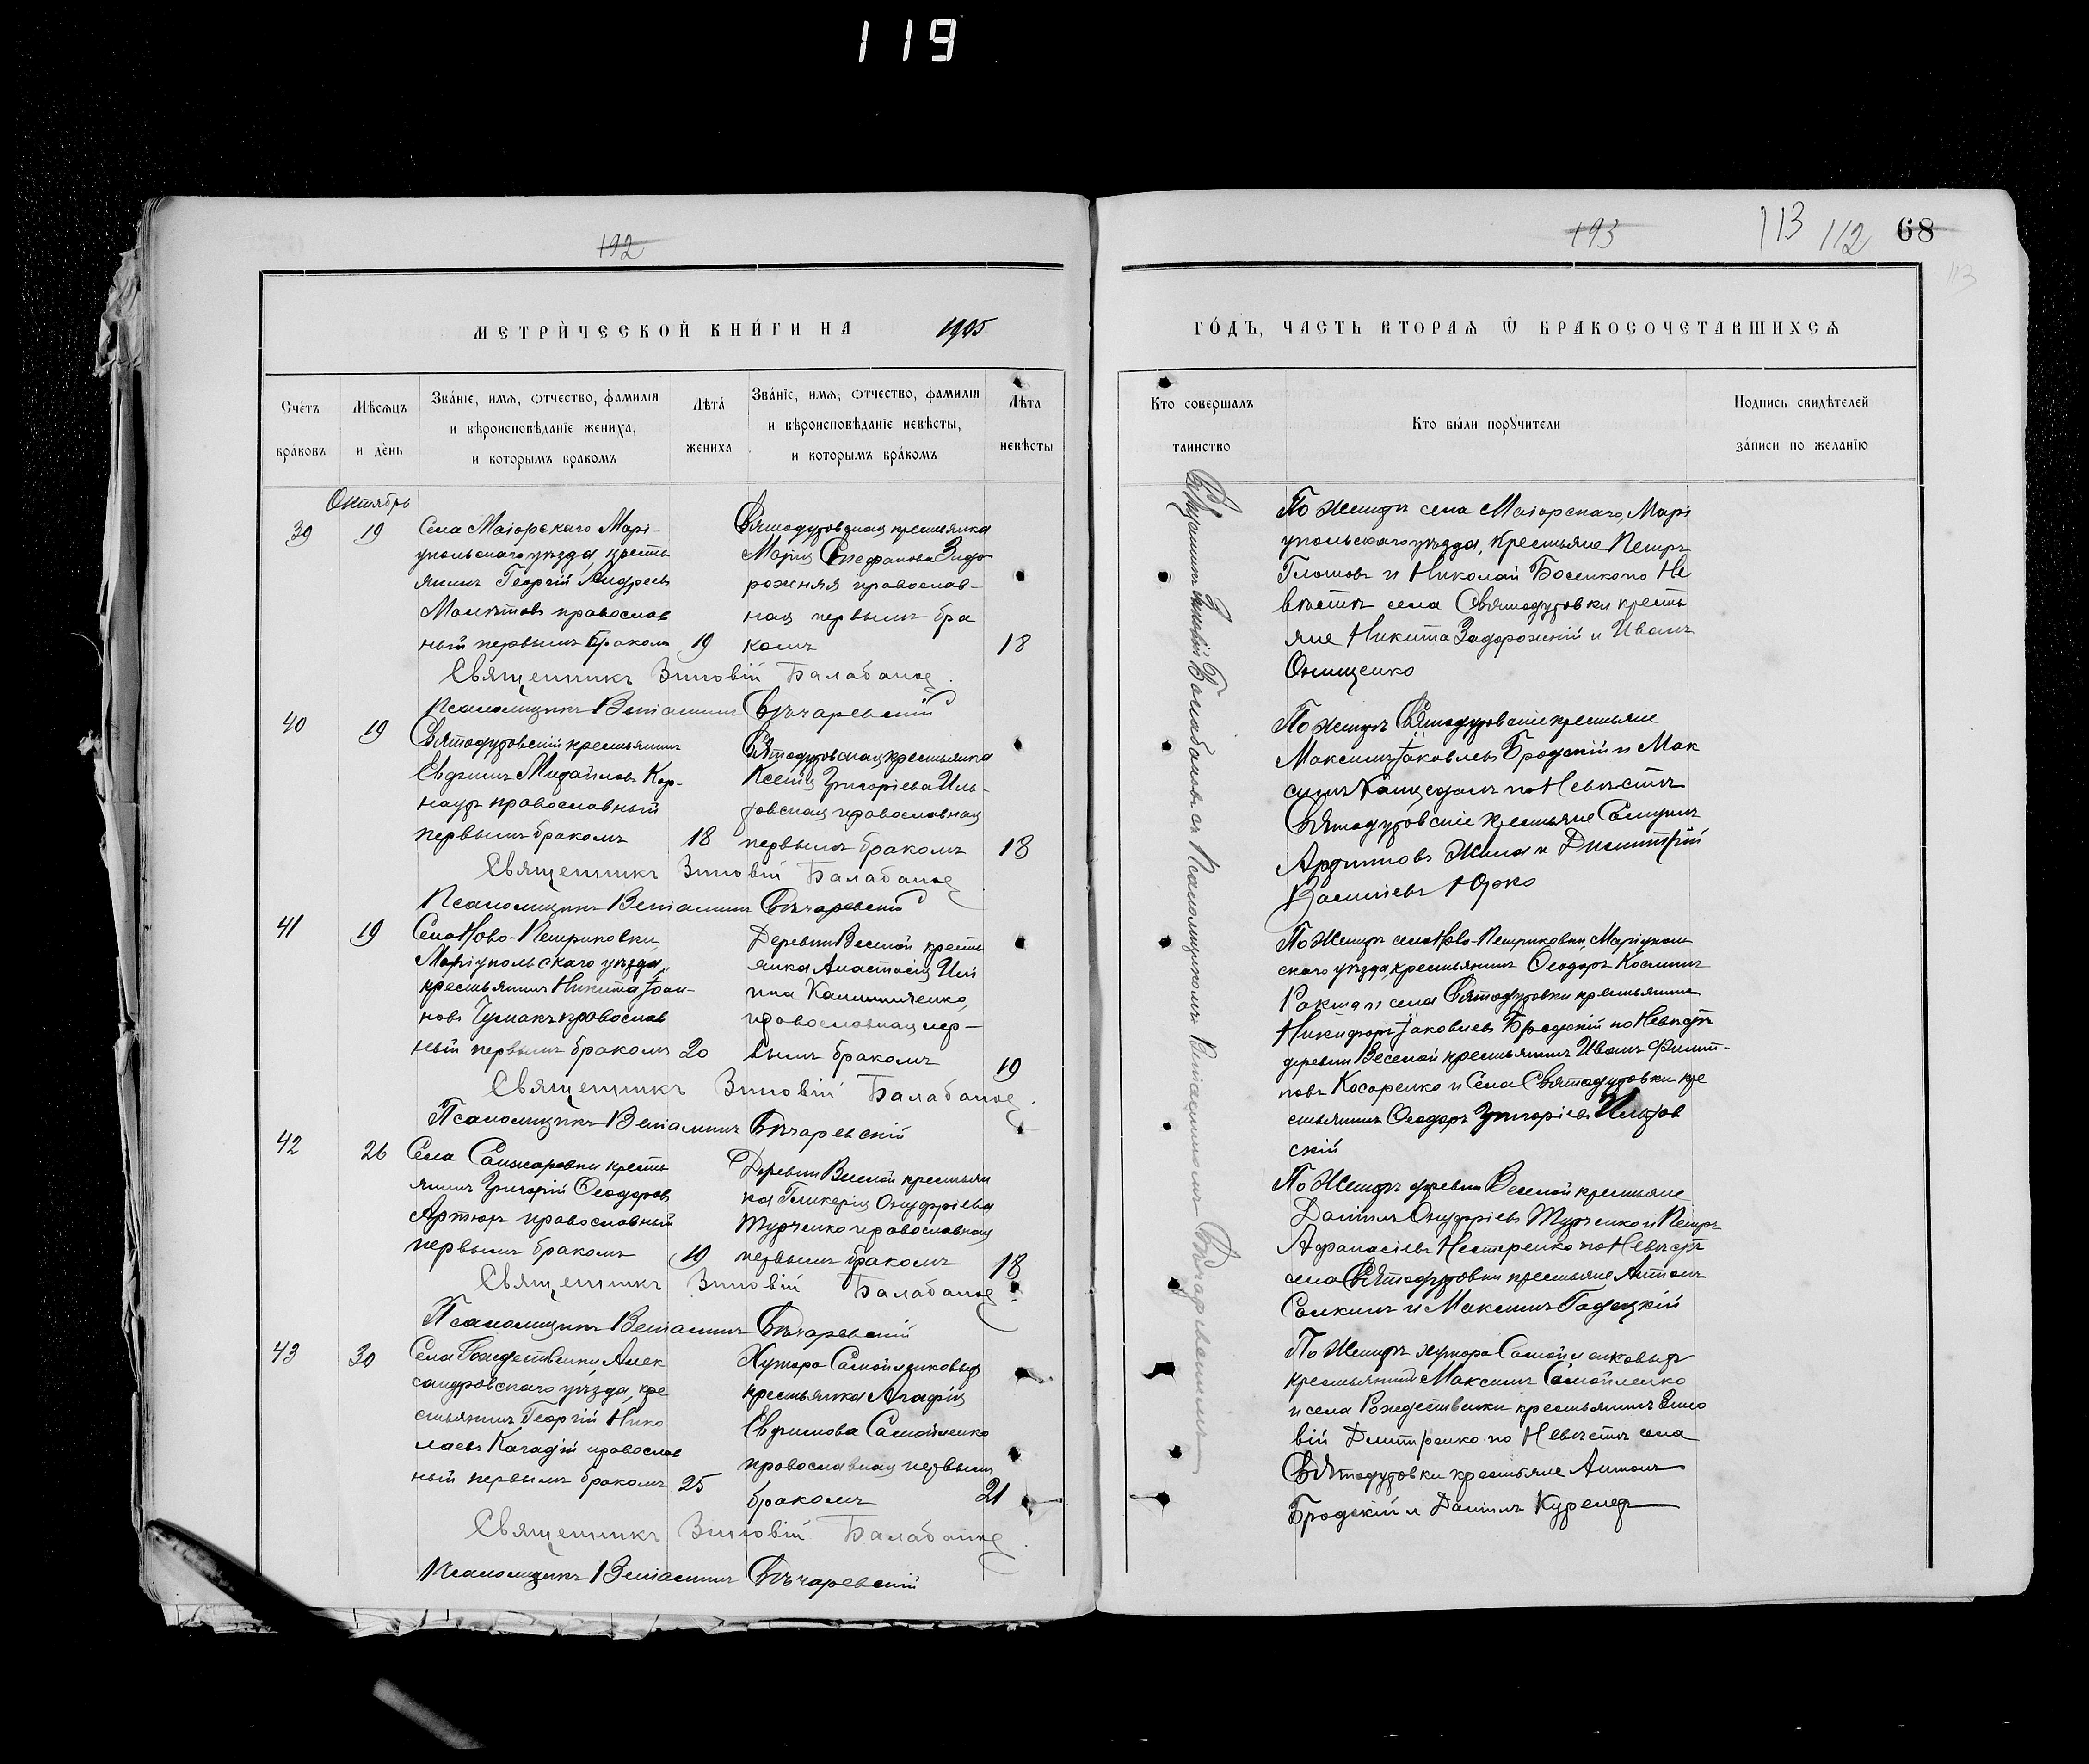 119
192
МЕТРИ́ЧЕСКОЙ КНИ́ГИ НА 1905
Сче́тъ бра́ковъ
Мѣсѧцъ и де́нь
Зва́нїе, имѧ, ѻтчество, фамилїѧ и вѣроисповѣданїе жениха, и которымъ бракомъ
Лѣта́ жениха
Зва́нїе, имѧ, ѻтчество, фамилїѧ и вѣроисповѣданїе невѣсты, и которымъ бра́комъ
Лѣта невѣсты
Октябрь
39
19
Села Маіорскаго Марі-
упольскаго уѣзда, кресть
янинъ Георгій Андреевъ
православ
ный первымъ бракомъ
19
Святодуховская крестьянка
Марія Стефанова Задо
рожняя православ-
ная первымъ бра
комъ
18
Священникъ Зиновій Балабанов
Псаломщикъ Веніаминъ Овчаревскій
40
19
Святодуховскій крестьянинъ
Евфимъ Михайловъ Кор-
наухъ православный
первымъ бракомъ
18
Святодуховская крестьянка
Ксенія Григоріева Иль-
ховская православная
первымъ бракомъ
18
Священникъ Зиновій Балабанов
Псаломщикъ Веніаминъ Овчаревскій
41
19
Села Ново-Петриковки
Маріупольскаго уѣзда,
крестьянинъ Никита Іоан-
новъ Чумакъ православ
ный первымъ бракомъ
20
Деревни Веселой кресть
янка Анастасія Или
ина
православная пер-
вымъ бракомъ
19
Священникъ Зиновій Балабанов
Псаломщикъ Веніаминъ Овчаревскій
42
26
Села Санжаровки кресть
янинъ Григорій Ѳеодоровъ
Артюхъ православный
первымъ бракомъ
19
Деревни Веселой крестьян
ка Гликерія Онуфріева
Турченко православная
первымъ бракомъ
18
Священникъ Зиновій Балабанов
Псаломщикъ Веніаминъ Овчаревскій
43
30
Села Рождественки Алек
сандровскаго уѣзда, кре
стьянинъ Георгій Нико
лаевъ православ
ный первымъ бракомъ
25
Хутора Самойленковыхъ
крестьянка Агафія
Евфимова Самойленко
православная первымъ
бракомъ
21
Священникъ Зиновій Балабанов
Псаломщикъ Веніаминъ Овчаревскій
193
113 112 68
113
ГО́ДЪ, ЧАСТЬ ВТОРАѦ Ѿ БРАКОСОЧЕТАВШИХСѦ
Кто совершалъ таинство
Кто бы́ли порꙋчители
Подпись свидѣтелей за́писи по желанїю
Священникъ Зиновій Балабановъ съ Псаломщикомъ Веніаминомъ Овчаревскимъ
По женихѣ села Маіорскаго, Марі
упольскаго уѣзда, крестьяне Петръ
и Николай Босенко по Не
вѣстѣ села Святодуховки кресть
яне Никита Задорожній и Иванъ
Онищенко
По женихѣ Святодуховскіе крестьяне
Максимъ Іаковлевъ Бродскій и Мак
симъ по Невѣстѣ
Святодуховскіе крестьяне
Жила и Димитрій
Василіевъ Юрко
По Женихѣ села Ново-Петриковки, Маріуполь
скаго уѣзда, крестьянинъ Ѳеодоръ Косминъ
и села Святодуховки крестьянинъ
Никифоръ Іаковлевъ Бродскій по Невѣстѣ
деревни Веселой крестьянинъ Иванъ Филип-
повъ Косаренко и Села Святодуховки кре
стьянинъ Ѳеодоръ Григоріевъ Ильхов
скій
По Женихѣ деревни Веселой крестьяне
Даніилъ Онуфріевъ Турченко и Петръ
Афанасіевъ Нестеренко по Невѣстѣ
села Святодуховки крестьяне Антонъ
и Максимъ Гадяцкій
По Женихѣ хутора Самойленковыхъ
крестьянинъ Максимъ Самойленко
и села Рождественки крестьянинъ Зино
вій Дмитренко по Невѣстѣ села
Святодуховки крестьяне Антонъ
Бродскій и Даніилъ